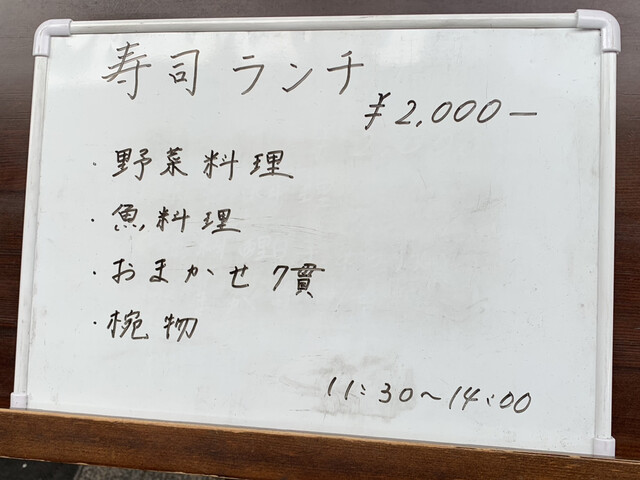 寿司ランチ
¥2,000-
・野菜料理
・魚料理
・おまかせ7貫
・椀物
11:30~14:00